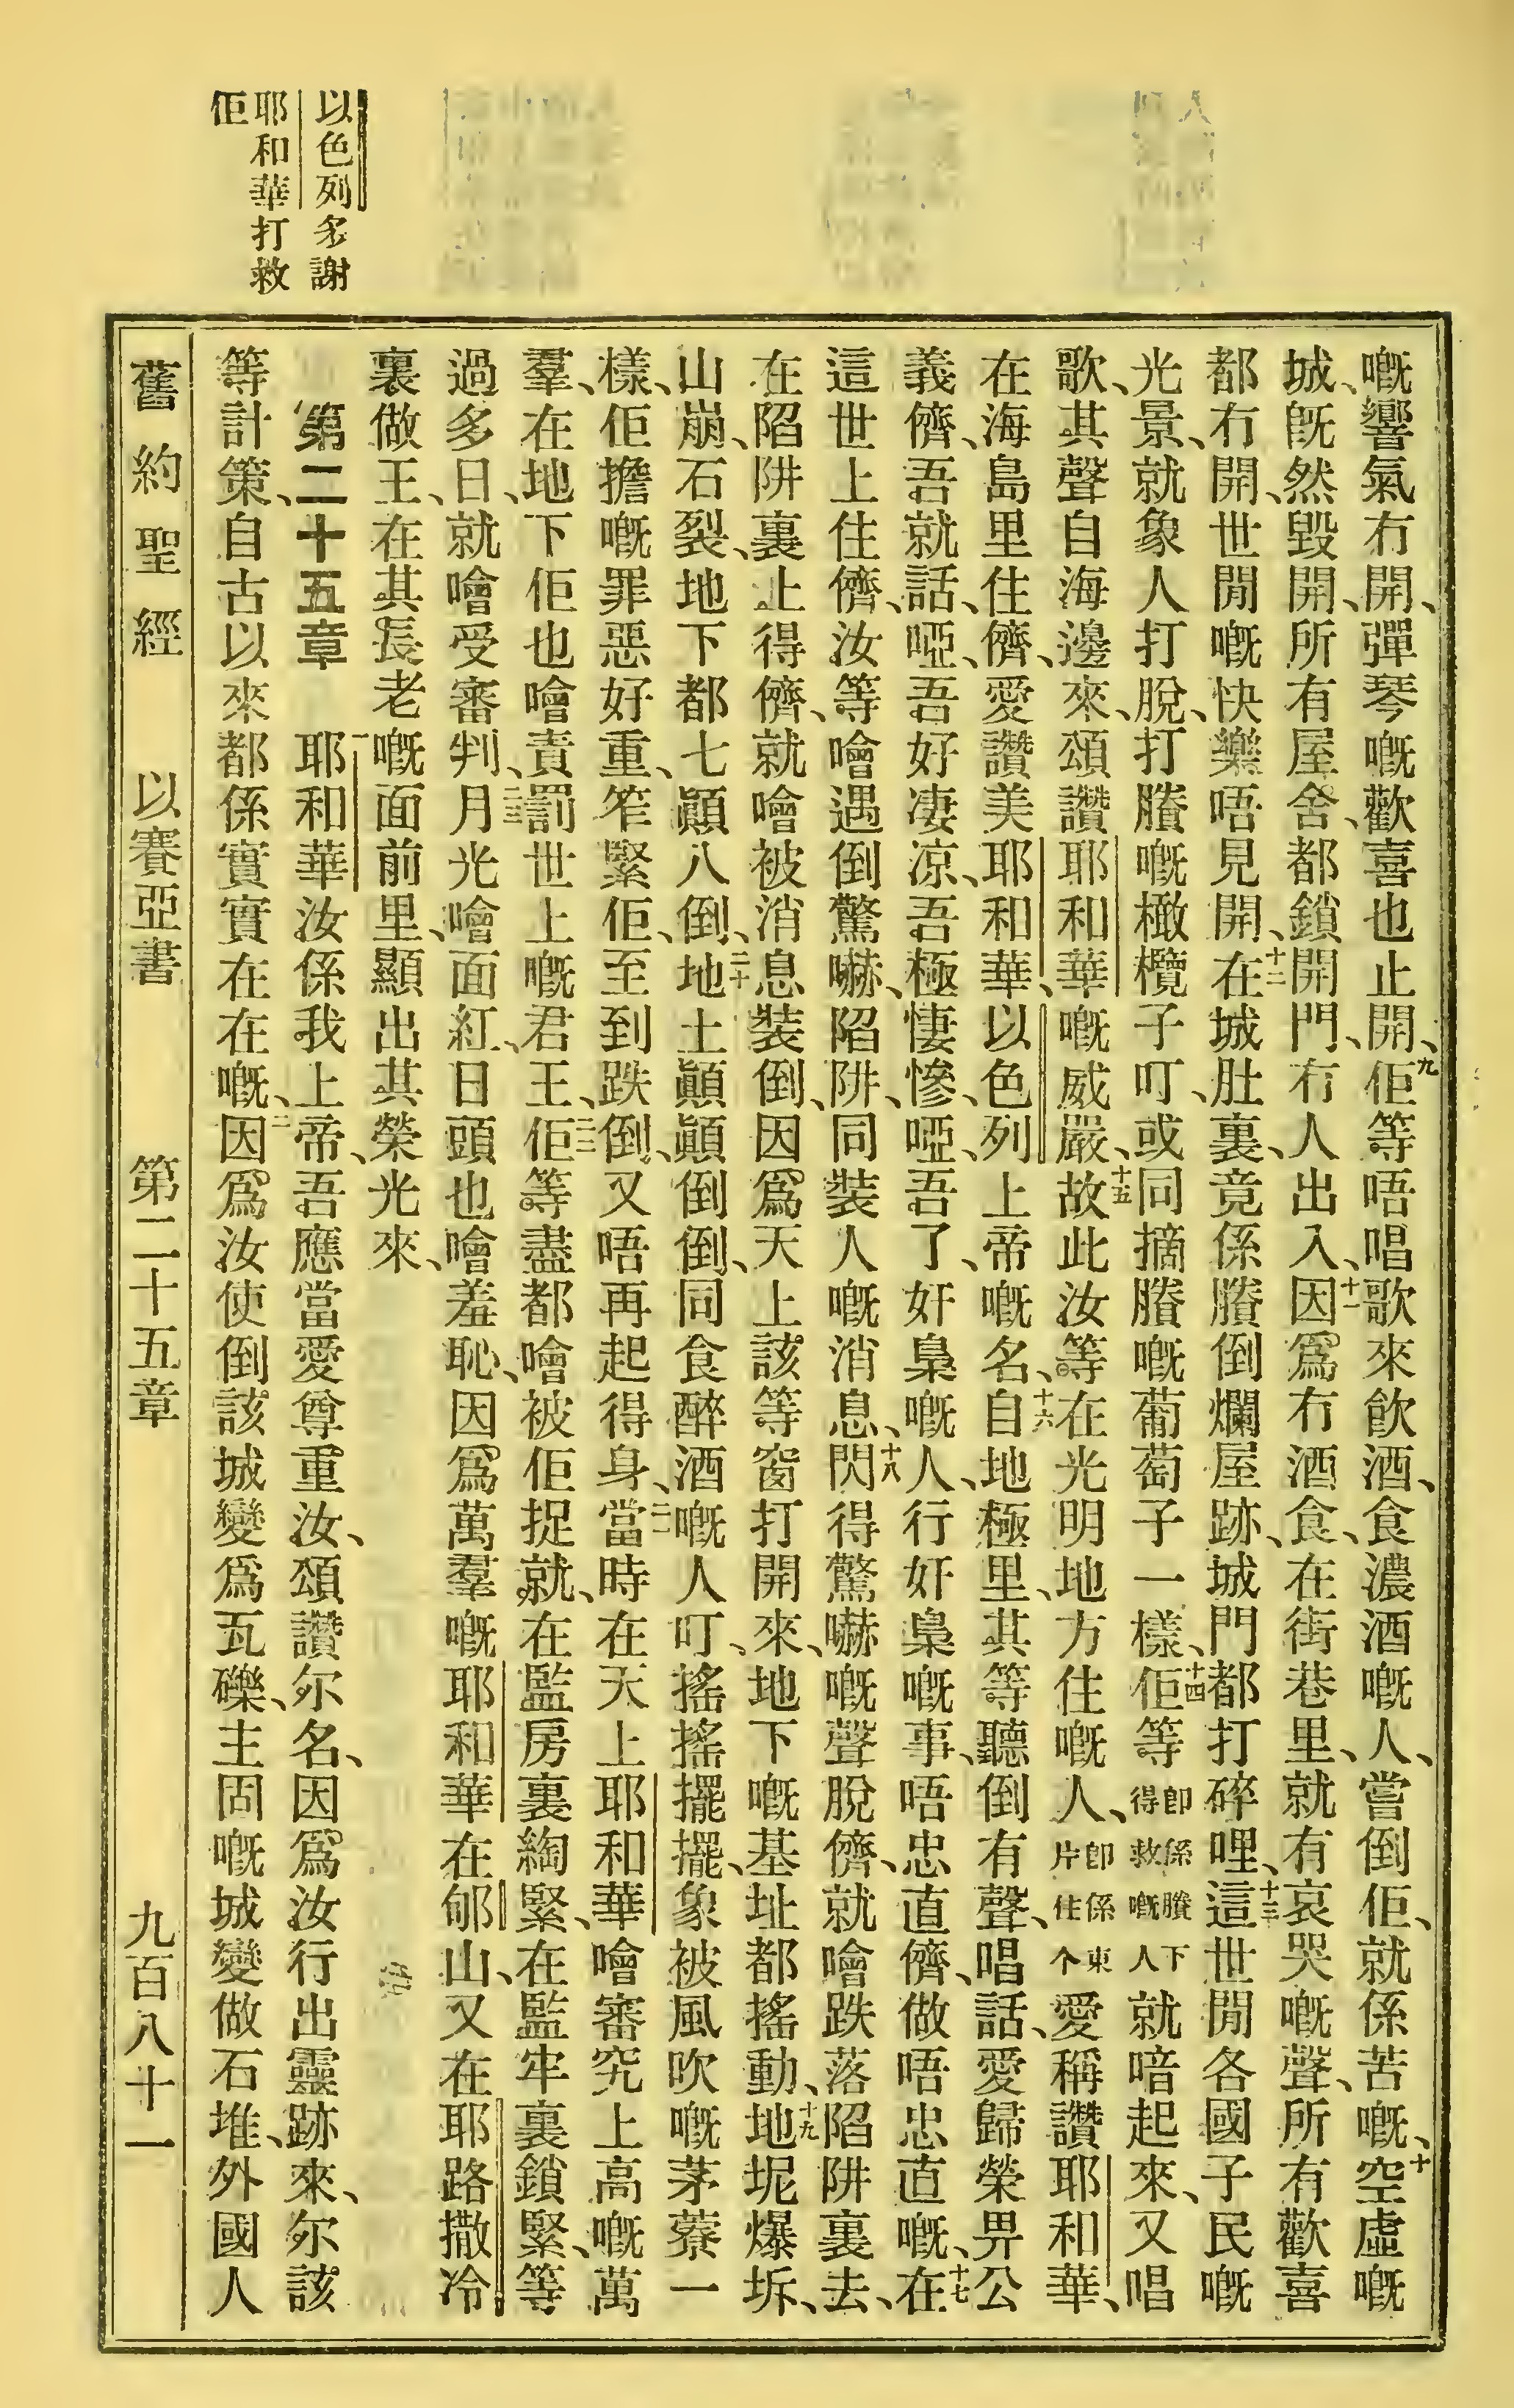 以色列多謝
耶和華打救
佢
嘅響氣冇開、彈琴嘅歡喜也止開、九佢等唔唱歌來飲酒、食濃酒嘅人、嘗倒佢、就係苦嘅、十空虛嘅
城、旣然毀開、所有屋舍、都鎖開門、冇人出入、十一因爲冇酒食、在街巷里、就有哀哭嘅聲、所有歡喜
都冇開、世閒嘅快樂唔見開、十二在城肚裏、竟係賸倒爛屋跡、城門都打碎哩、十三這世閒各國子民嘅
光景、就象人打脫、打賸嘅橄欖子叮、或同摘賸嘅葡萄子一樣、十四佢等卽係賸下得救嘅人就喑起來、又唱
歌、其聲自海邊來、頌讚耶和華嘅威嚴、十五故此汝等在光明地方住嘅人、卽係東片住个愛稱讚耶和華、
在海島里住儕、愛讚美耶和華、以色列上帝嘅名、十六自地極里、其等聽倒有聲、唱話、愛歸榮畀公
義儕、吾就話、啞、吾好凄凉、吾極悽慘、啞、吾了、奸梟嘅人、行奸梟嘅事、唔忠直儕、做唔忠直嘅、十七在
這世上住儕、汝等噲遇倒驚嚇、陷阱、同裝人嘅消息、十八閃得驚嚇嘅聲脫儕、就噲跌落陷阱裏去、
在陷阱裏止得儕、就噲被消息裝倒、因爲天上該等窗打開來、地下嘅基址都搖動、十九地坭爆坼、
山崩、石裂、地下都七顚八倒、二十地土顚顚倒倒、同食醉酒嘅人叮、搖搖擺擺、象被風吹嘅茅藔一
樣、佢擔嘅罪惡好重、笮緊佢、至到跌倒、又唔再起得身、二一當時在天上耶和華噲審究上高嘅萬
羣、在地下佢也噲責罰世上嘅君王、二二佢等盡都噲被佢捉就、在監房裏綯緊、在監牢裏鎖緊、等
過多日、就噲受審判、二三月光噲面紅、日頭也噲羞恥、因爲萬羣嘅耶和華在郇山、又在耶路撒冷
裏做王、在其長老嘅面前里、顯出其榮光來、
第二十五章　一耶和華汝係我上帝、吾應當愛尊重汝、頌讚尔名、因爲汝行出靈跡來、尔該
等計策、自古以來都係實實在在嘅、二因爲汝使倒該城變爲瓦礫、主固嘅城變做石堆、外國人
舊約聖經　以賽亞書　第二十五章　九百八十一